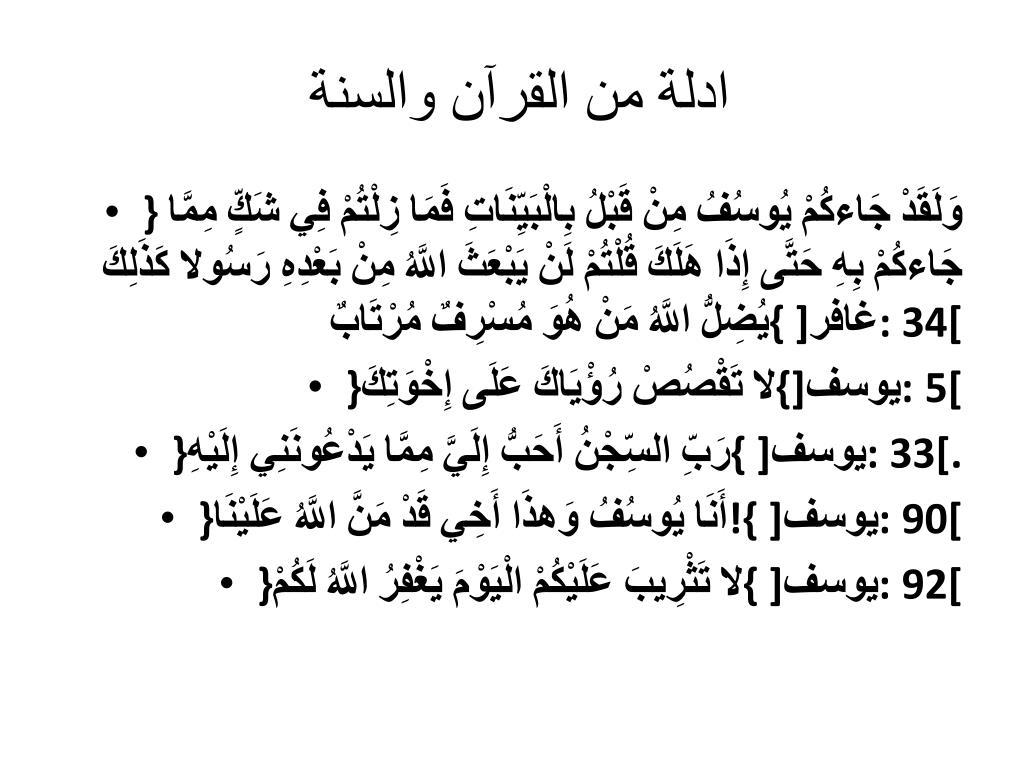 ادلة من القرآن والسنة
• { وَلَقَدْ جَاءكُمْ يُوسُفُ مِنْ قَبْلُ بِالْبَيِّنَاتِ فَمَا زِلْتُمْ فِي شَكٍّ مِمَّا
جَاءكُمْ بِهِ حَتَّى إِذَا هَلَكَ قُلْتُمْ لَنْ يَبْعَثَ اللَّهُ مِنْ بَعْدِهِ رَسُولا كَذَلِكَ
يُضِلُّ اللَّهُ مَنْ هُوَ مُسْرِفٌ مُرْتَابٌ} [غافر: 34]
• {لا تَقْصُصْ رُؤْيَاكَ عَلَى إِخْوَتِكَ}[يوسف: 5]
• {رَبِّ السِّجْنُ أَحَبُّ إِلَيَّ مِمَّا يَدْعُونَنِي إِلَيْهِ} [يوسف: 33].
• {أَنَا يُوسُفُ وَهذَا أَخِي قَدْ مَنَّ اللَّهُ عَلَيْنَا!} [يوسف: 90]
• {لا تَثْرِيبَ عَلَيْكُمْ الْيَوْمَ يَغْفِرُ اللَّهُ لَكُمْ} [يوسف: 92]